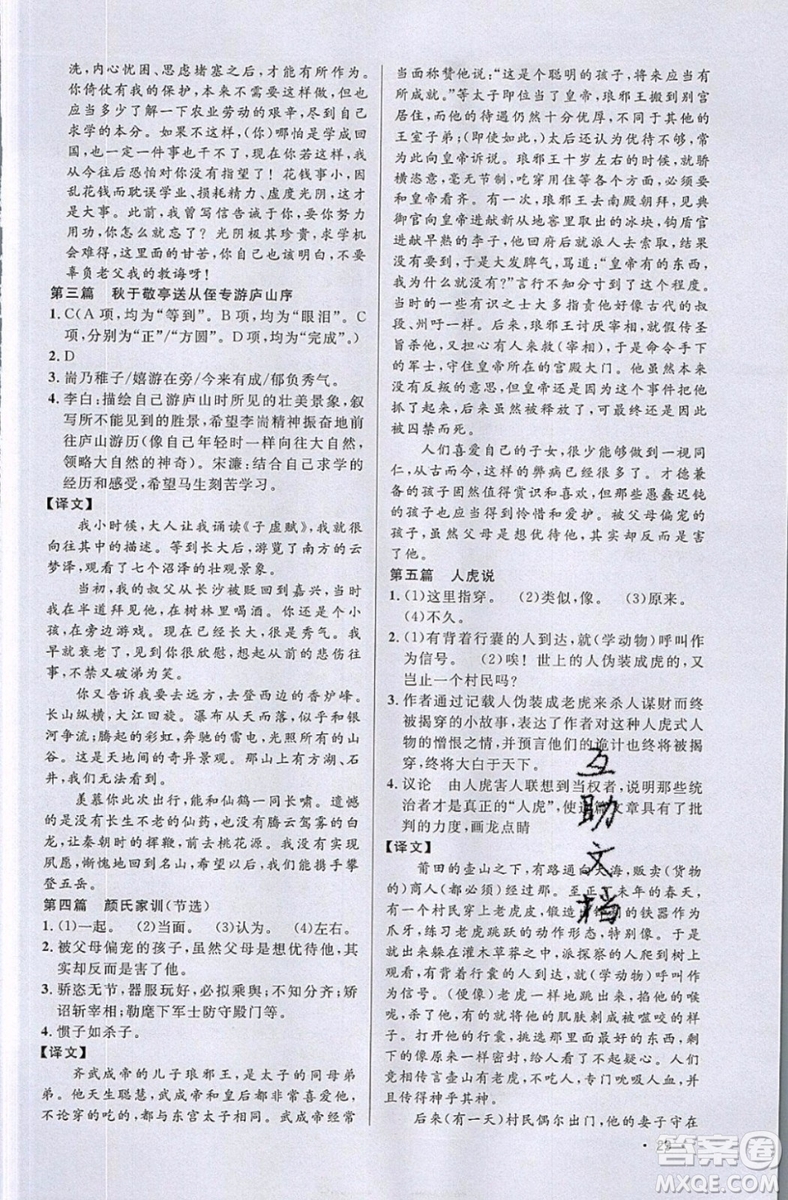 洗，内心忧困、思虑堵塞之后，才能有所作为。
你倚仗有我的保护，原本不需要这样做，但也
应当多少了解一下农业劳动的艰辛，尽到自己
求学的本分。如果不是这样，(你)哪怕是给我
写一封信，定一件事也干不了，那么这样下去，
我从今往后恐怕对你没有指望了！花钱事小，因
乱花钱而耽误学业、损耗精力、虚度光阴，这才
是大事。此前，我曾写信告诫于你，让你努力
用功，你怎么就忘了？光阴极其珍贵，求学机
会难得，这一切的甘苦，你也应该明白，不要
辜负老父我的教诲呀！
第三篇 秋于敬亭送从侄专游庐山序
1. C(A项，均为“等到”。B项，均为“眼泪”。C
项，分别为“正”/“方圆”。D项，均为“完成”。)
2. D
3. 耑乃稚子/嬉游在旁/今来有成/郁负秀气。
4. 李白：描绘自己游庐山时所见的秋美景象，叙
写所不能到的胜景，希望李耑精神振奋地前
往庐山游历(或像自己年轻时一样四方游历，
领略大自然的神奇)。宋濂：结合自己求学的
经历和感受，希望马生刻苦学习。
【译文】
我小时候，大人让我诵读《子虚赋》，我就很
向往其中的描述。等到长大后，游览了南方的云
梦泽，看遍了七泽的壮观景象。
当初，我的叔父从长沙被贬回到嘉兴，当时我
在半道拜见他，在树林里喝酒。你还是个小孩，
在旁边游戏。今天你来了，很是秀气。我
早就衰老了，见到你很欣慰，当时的悲伤往事
又申述不尽，禁不住破涕为笑。
你又告诉我要去远方，去登西边的香炉峰。
长山纵横，大江回旋。瀑布从天而落，似乎和银
河争流，如彩虹腾飞，奔驰的雷电，光照来回于山
谷。这是天地间的奇异景观。那山上有方湖、石
井，我无法看到。
羡慕你此次出行，能与仙鹤一同长啸。遗憾
的是没有生长生不老的仙药，也没有腾云驾雾的白
龙，让秦朝时的挥鞭，前去桃花源。没有实现
夙愿，惭愧没有回到名山，希望以后能携手攀
登五岳。
第四篇 颜氏家训(节选)
1. (1)一起。 (2)当面。 (3)认为。 (4)左右。
2. 被父母偏宠的孩子，虽然父母是想优待他，其
实却反而是害了他。
3. 骄恣无节，器服玩好，必拟乘舆；不知分齐；矫
诏斩宰相；勒麾下军士防守殿门等。
4. 惯子如杀子。
【译文】
齐武成帝的儿子琅邪王，是太子的同母弟
弟。他天生聪慧，武成帝和皇后都非常喜爱他，
不论穿的吃的，都与东宫太子相同。武成帝经常
当面称赞他说：“这是个聪明的孩子，将来应当会
有所成就。”等太子即位当了皇帝，琅邪王搬到别宫
居住，他的待遇仍然十分优厚，不同于其他的
王室子弟；(即使如此)太后还认为优待不够，常
向皇帝诉说。琅邪王十岁左右的时候，就骄
横恣意，毫无节制，吃穿用住各方面，必须要
和皇帝看齐。有一次，琅邪王去南殿朝拜，典
御官向皇帝进献新从地窖里取出的冰块，钩盾官
进献早熟的李子，他回府后就派人去索取，
没有得到，于是就大发脾气，骂道：“皇帝有的东西，
我为什么没有？”言行不知分寸到了这个程度。
有见识的有识之士大多指责他好像古代的共叔
段、州吁一样。后来，琅邪王讨厌宰相，就假传圣
旨杀他，又担心有人来救(宰相)，于是命令手下
的军士，守住皇帝所在的宫殿大门。他原本
没有反叛的想法，受到安抚后就撤兵了，可最终还是
因此被幽禁而死。
人们喜爱自己的子女，很少能够做到一视同
仁，从古而今，这样的弊病已经很多了。德才兼
备的孩子固然值得赏识和喜欢，愚蠢迟钝
的孩子也应当得到怜惜和爱护。被父母偏宠的
孩子，虽然父母是想优待他，其实却反而是害
了他。
第五篇 人虎说
1. (1)这里指穿。 (2)类似，像。 (3)原来。
(4)不久。
2. (1)有背着行囊的人到达，就(学动物)呼叫作
为信号。 (2)唉！世上的人伪装成虎的，又
岂止一村民吗？
3. 作者通过记载人伪装成老虎来杀人谋财而终
被揭穿的小故事，表达了作者对这种人虎式人
物的憎恨之情，并预示他们的诡计也终将被
揭穿，终将大白于天下。
4. 议论 由人虎害人联想到当权者，说明那些统
治者才是真正的“人虎”，使这篇文章具有了批
判的力度，画龙点睛
【译文】
莆田的壶山之下，有路通向大海，贩卖(货物
的)商人(都必须)经过这里。至正丁未年的春天，
有一个村民穿上老虎皮，锻造了锋利的铁器作为
爪牙，练习老虎跳跃的动作形态，特别
像，便趴在灌木草莽之中，派探察的人爬到树上
观看，有背着行囊的人到达，就(学动物)呼叫
作为信号。(便像)老虎一样地跳出来，掐他的喉
咙，杀死他，有时将他的肌肤刺成被噬咬的
样子。打开他的行囊，挑选他的好东西，剩
下的像原来一样包好，使人不起疑心。人们
争相传言壶山下有老虎，不吃人，只吮人血，
并且认为它很神异。
后来(有一天)村民偶尔出门，他的妻子守在
互助文档
· 29 ·
答案圈
MXQE.COM